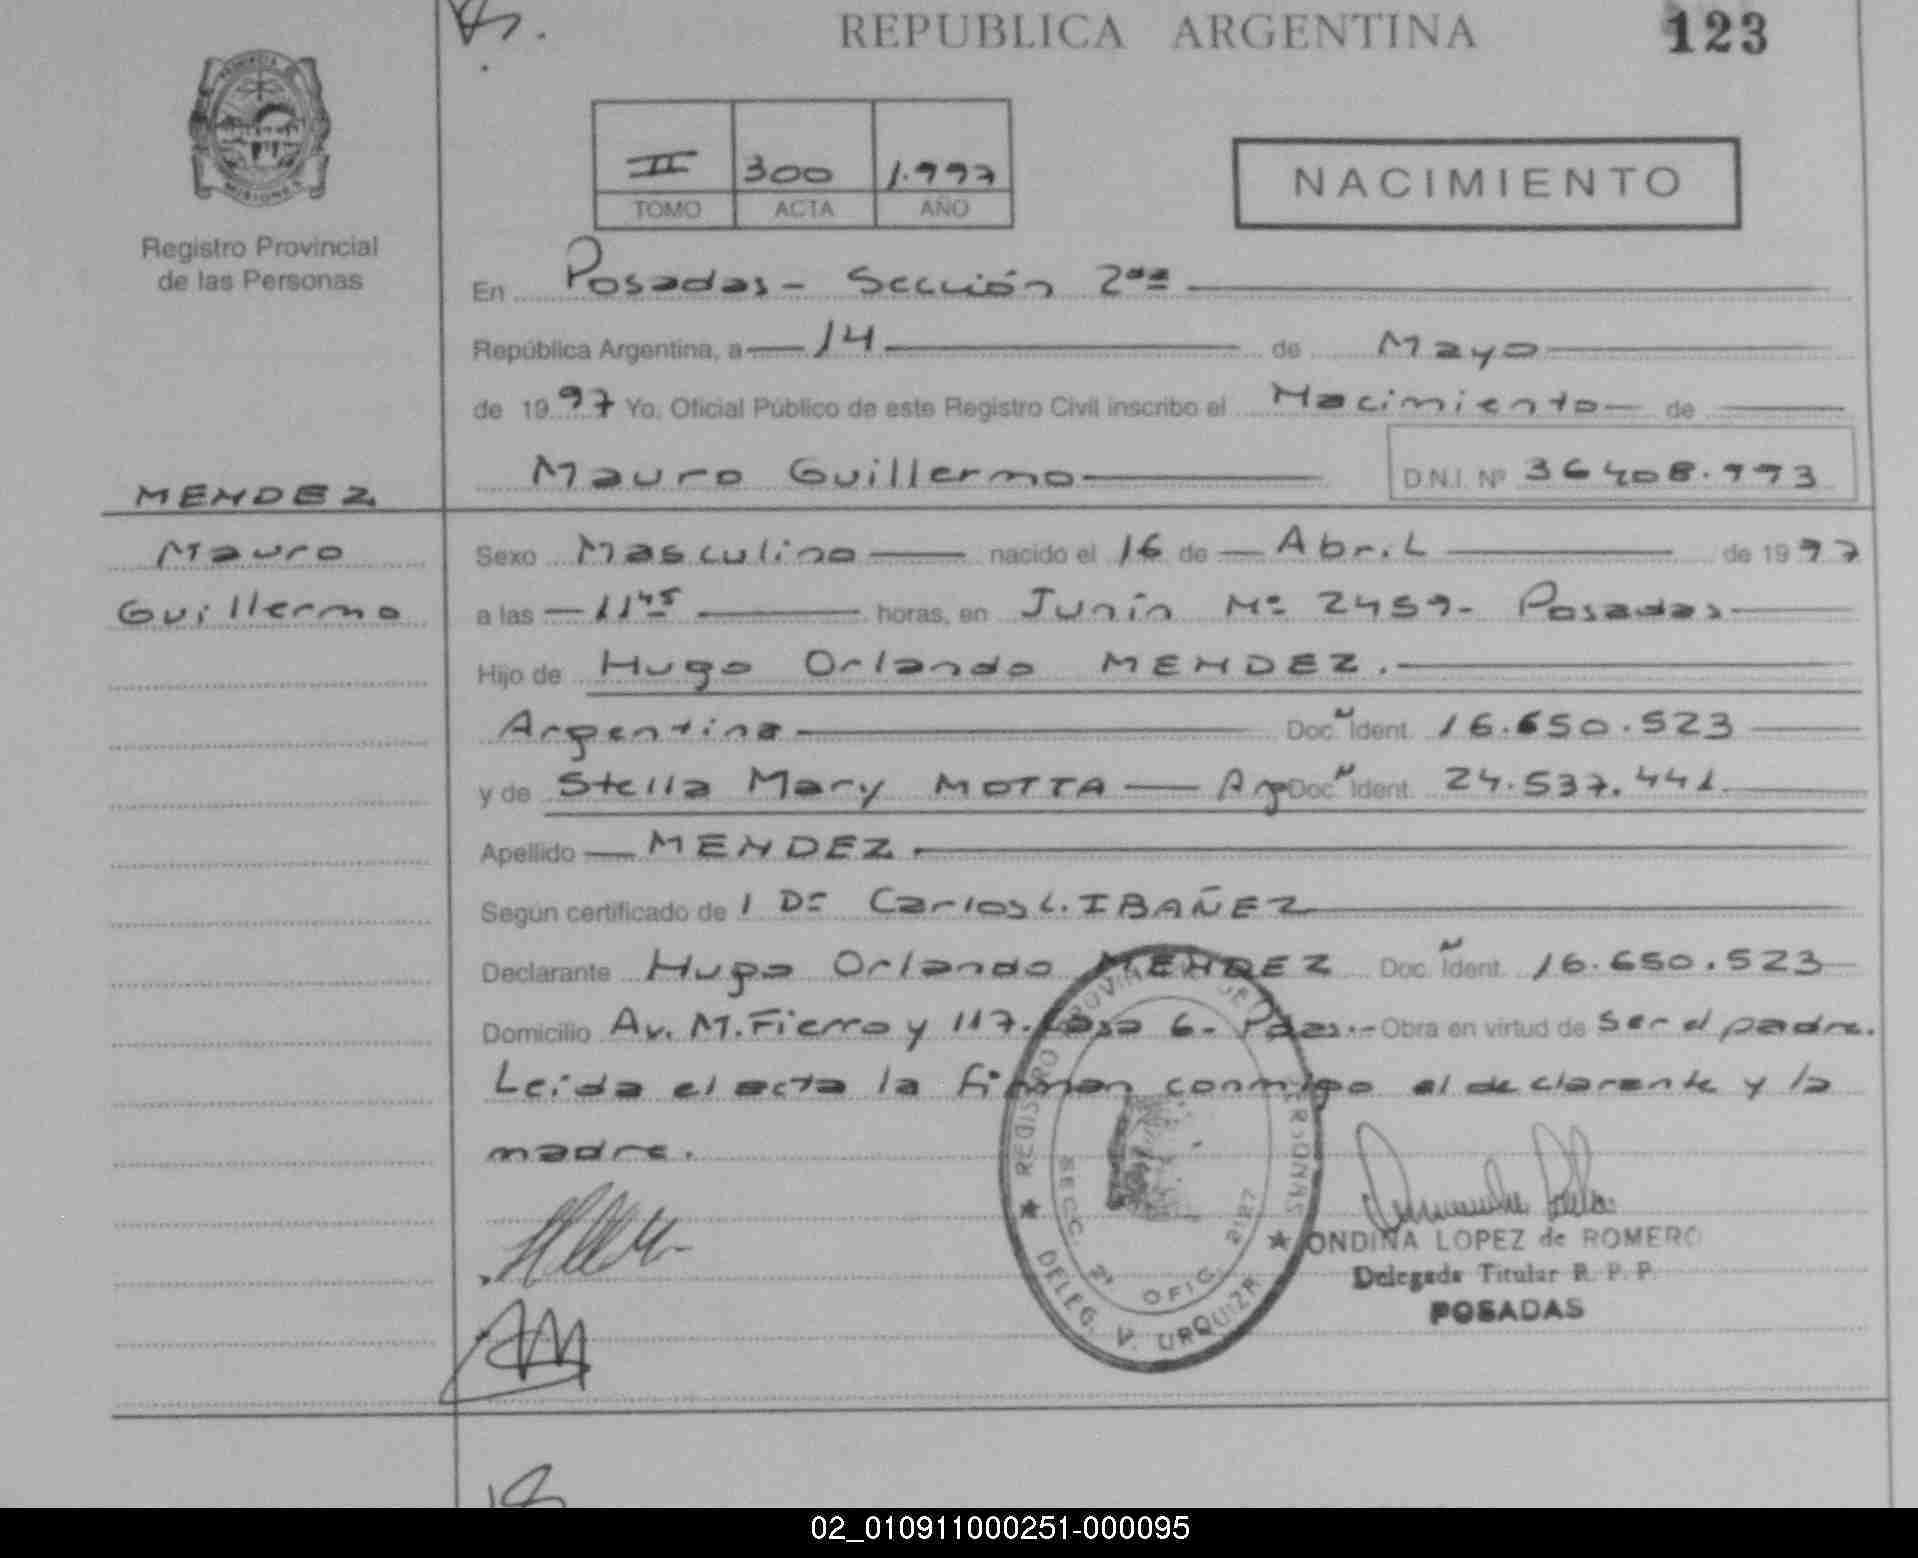 REPUBLICA ARGENTINA
123
PROVINCIA DE
MISIONES
Registro Provincial
de las Personas
II 300 1.997
TOMO ACTA AÑO
NACIMIENTO
En Posadas - Sección 2da
República Argentina, a 14 de Mayo
de 1997 Yo, Oficial Público de este Registro Civil inscribo el Nacimiento de
Mauro Guillermo D.N.I. Nº 36408.993
MENDEZ
Mauro
Guillermo
Sexo Masculino nacido el 16 de Abril de 1997
a las 11 45 horas, en Junín Nº 2459- Posadas
Hijo de Hugo Orlando MENDEZ.
Argentina Doc. Ident. 16.650.523
y de Stella Mary MOTTA - Arg Doc. Ident. 24.537.441
Apellido MENDEZ.
Según certificado de 1 Dr Carlos L. IBAÑEZ
Declarante Hugo Orlando MENDEZ Doc. Ident. 16.650.523
Domicilio Av. M. Fierro y 117. Casa 6- Pdas.- Obra en virtud de ser el padre.
Leída el acta la firman conmigo el declarante y la
madre.
★ REGISTRO PROVINCIAL DE LAS PERSONAS ★
DELEG. V. URQUIZA
SECC. 2ª OFIC. 2127
ONDINA LOPEZ de ROMERO
Delegada Titular R. P. P.
POSADAS
02_010911000251-000095